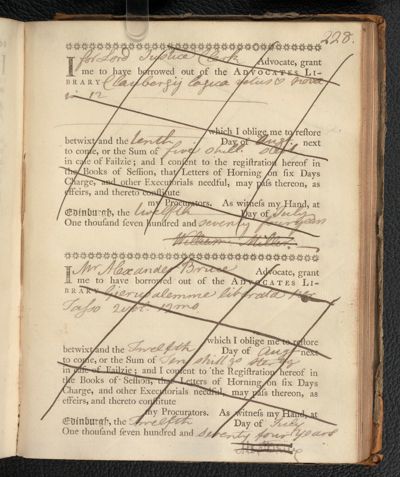 228.
I for Lord Justice Clerk Advocate, grant
me to have borrowed out of the ADVOCATES LI-
BRARY logica vetus &
in 12
which I oblige me to restore
betwixt and the tenth Day of Augt. next
to come, or the Sum of five shill. sterl
in case of Failzie; and I consent to the registration hereof in
the Books of Session, that Letters of Horning on six Days
Charge, and other Executorials needful, may pass thereon, as
effeirs, and thereto constitute
my Procurators. As witness my Hand, at
Edinburgh, the twelfth Day of July
One thousand seven hundred and seventy four years
William Miller.
I Mr Alexander Bruce Advocate, grant
me to have borrowed out of the ADVOCATES LI-
BRARY Gierusalemme liberata
Tasso 2 vol. 12mo
which I oblige me to restore
betwixt and the Twelfth Day of Augt next
to come, or the Sum of Ten shillgs sterlg
in case of Failzie; and I consent to the Registration hereof in
the Books of Session, that Letters of Horning on six Days
Charge, and other Executorials needful, may pass thereon, as
effeirs, and thereto constitute
my Procurators. As witness my Hand, at
Edinburgh, the twelfth Day of July
One thousand seven hundred and seventy four years